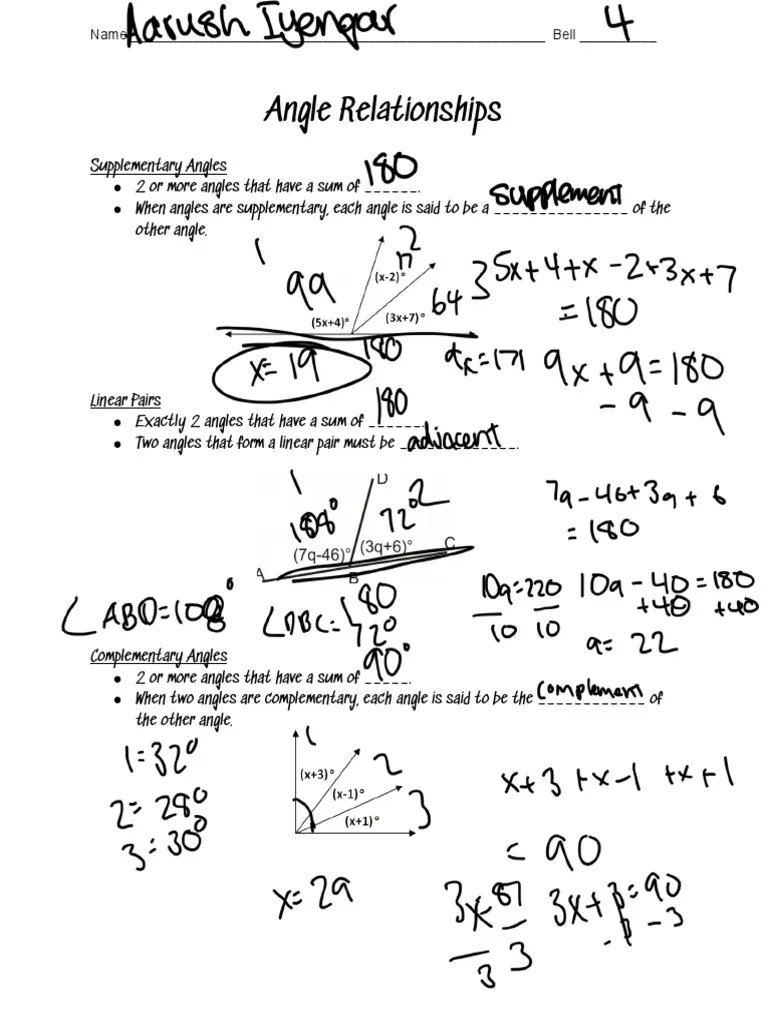 Name Aarush Iyengar Bell 4
Angle Relationships
Supplementary Angles
● 2 or more angles that have a sum of 180.
● When angles are supplementary, each angle is said to be a supplement of the
other angle.
1 2
99 17
(x-2)°
64 3
(5x+4)° (3x+7)°
180
x=19
5x+4+x-2+3x+7
=180
9x=171 9x+9=180
-9 -9
Linear Pairs
● Exactly 2 angles that have a sum of 180
● Two angles that form a linear pair must be adjacent.
1 D 2
108° 72°
(7q-46)° (3q+6)°
A B C
7q-46+3q+6
=180
10q=220 10q-40=180
10 10 +40 +40
q=22
∠ABD=108°
∠DBC=180
72°
Complementary Angles
● 2 or more angles that have a sum of 90°.
● When two angles are complementary, each angle is said to be the complement of
the other angle.
1=32°
2=28°
3=30°
1
(x+3)° 2
(x-1)°
(x+1)° 3
x+3+x-1+x+1
=90
x=29
3x=87 3x+3=90
3 3 -3 -3